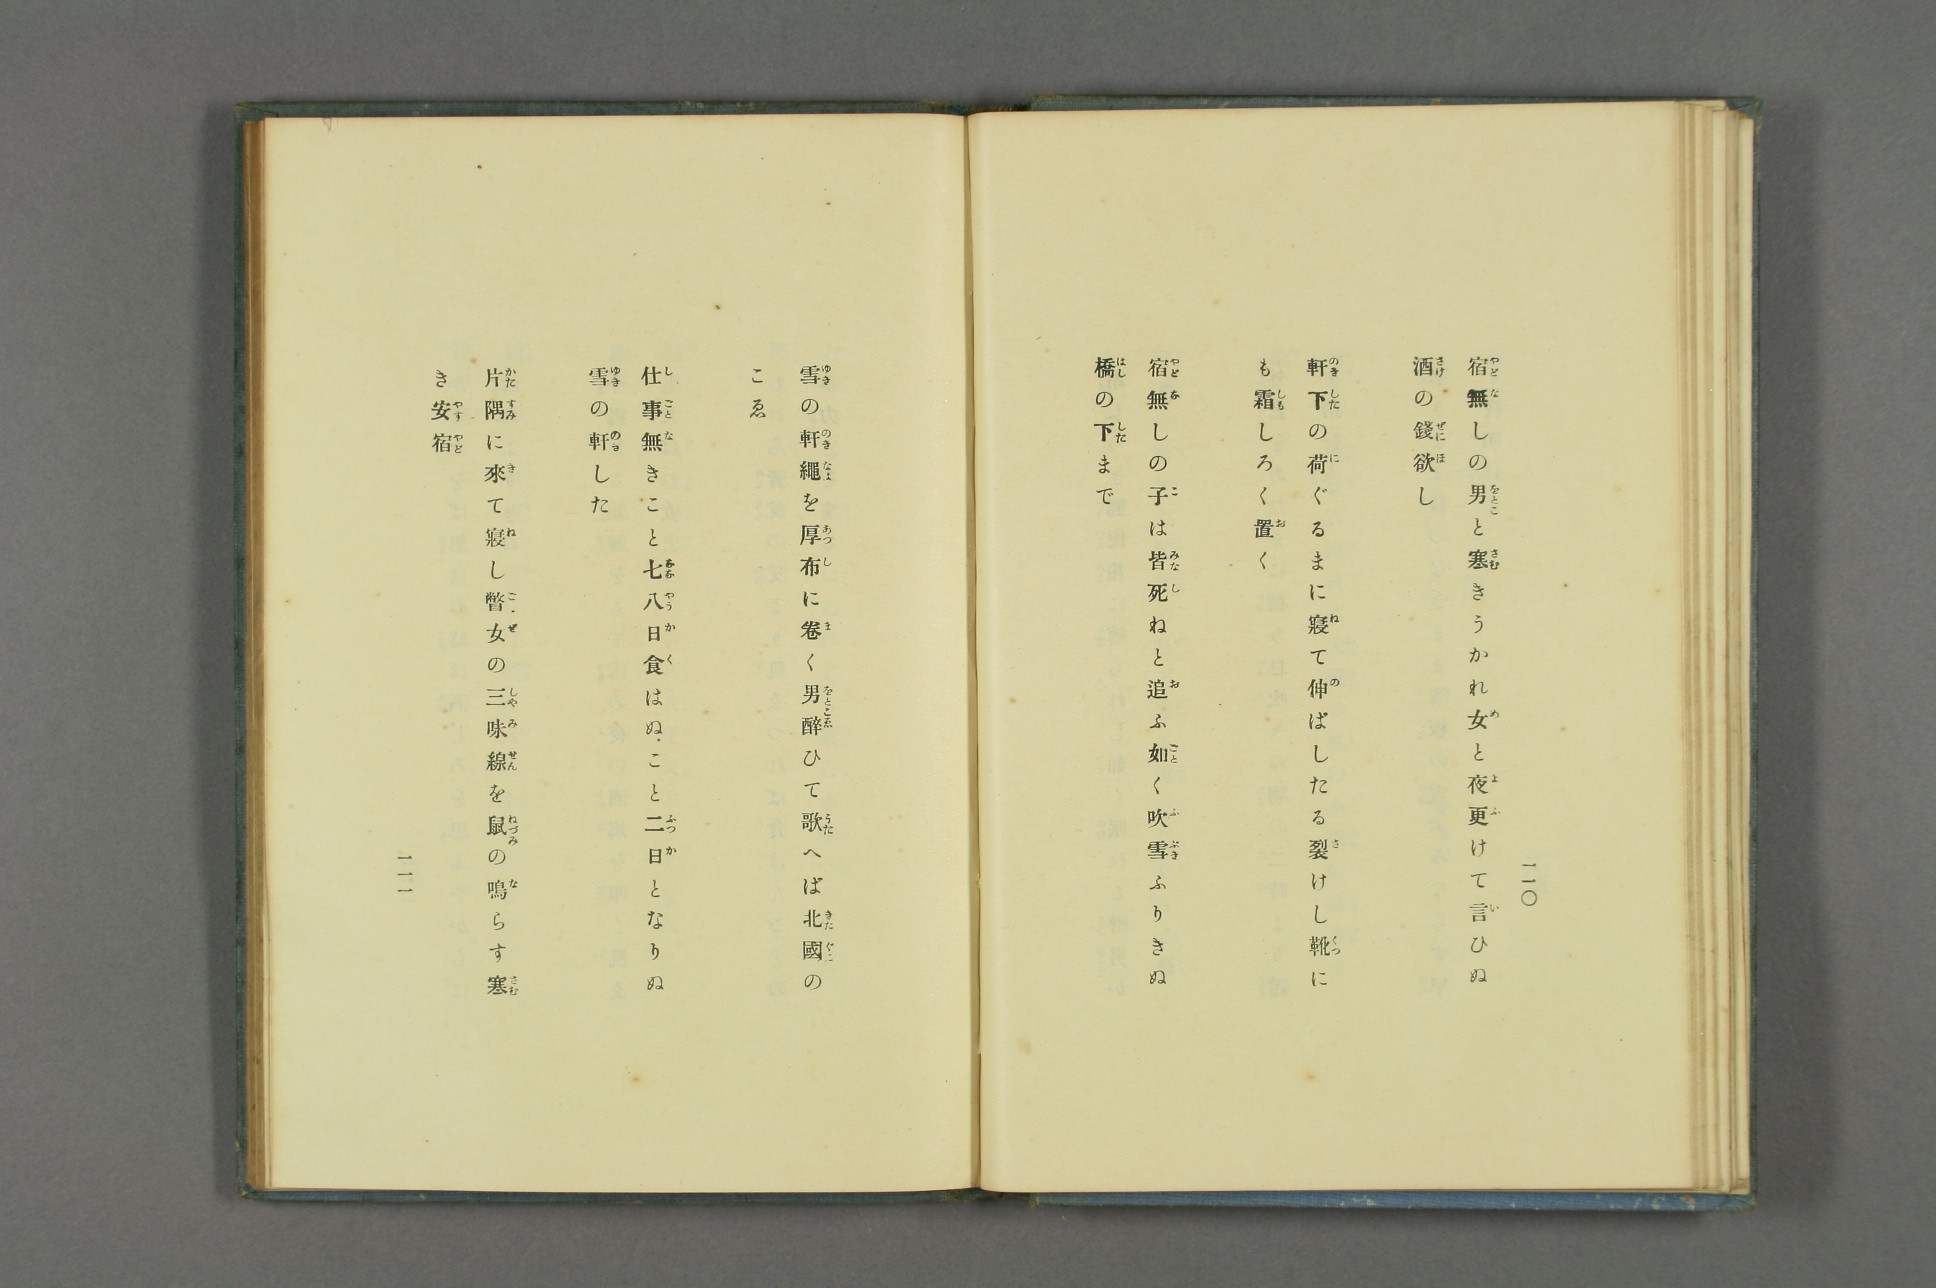 宿無しの男と寒きうかれ女と夜更けて言ひぬ
酒の錢欲し
軒下の荷ぐるまに寢て伸ばしたる裂けし靴に
も霜しろく置く
宿無しの子は皆死ねと追ふ如く吹雪ふりきぬ
橋の下まで
一一〇
雪の軒繩を厚布に卷く男醉ひて歌へば北國の
こゑ
仕事無きこと七八日食はぬこと二日となりぬ
雪の軒した
片隅に來て寢し瞽女の三味線を鼠の鳴らす寒
き安宿
一一一